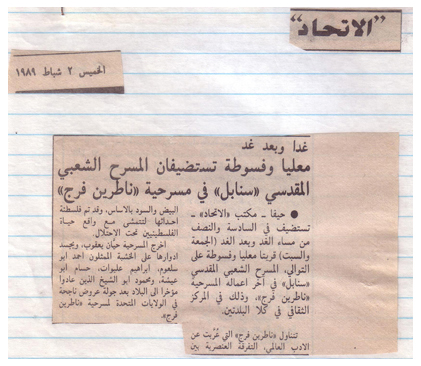 "الاتحاد"
الخميس ٢ شباط ١٩٨٩
غدا وبعد غد
معليا وفسوطة تستضيفان المسرح الشعبي
المقدسي «سنابل» في مسرحية «ناطرين فرج»
● حيفا - مكتب «الاتحاد» -
تستضيف في السادسة والنصف
من مساء الغد وبعد الغد (الجمعة
والسبت) قريتا معليا وفسوطة على
التوالي، المسرح الشعبي المقدسي
«سنابل» في آخر اعماله المسرحية
«ناطرين فرج»، وذلك في المركز
الثقافي في كلا البلدتين.
تتناول «ناطرين فرج» التي عُرّبت عن
الادب العالمي، التفرقة العنصرية بين
البيض والسود بالاساس، وقد تم فلسطنة
احداثها لتتمشى مع واقع حياة
الفلسطينيين تحت الاحتلال.
اخرج المسرحية حيان يعقوب، ويجسد
ادوارها على الخشبة الممثلون احمد ابو
سلعوم، ابراهيم عليوات، حسام ابو
عيشة، ومحمود ابو الشيخ الذين عادوا
مؤخرا الى البلاد بعد جولة عروض ناجحة
في الولايات المتحدة لمسرحية «ناطرين
فرج».